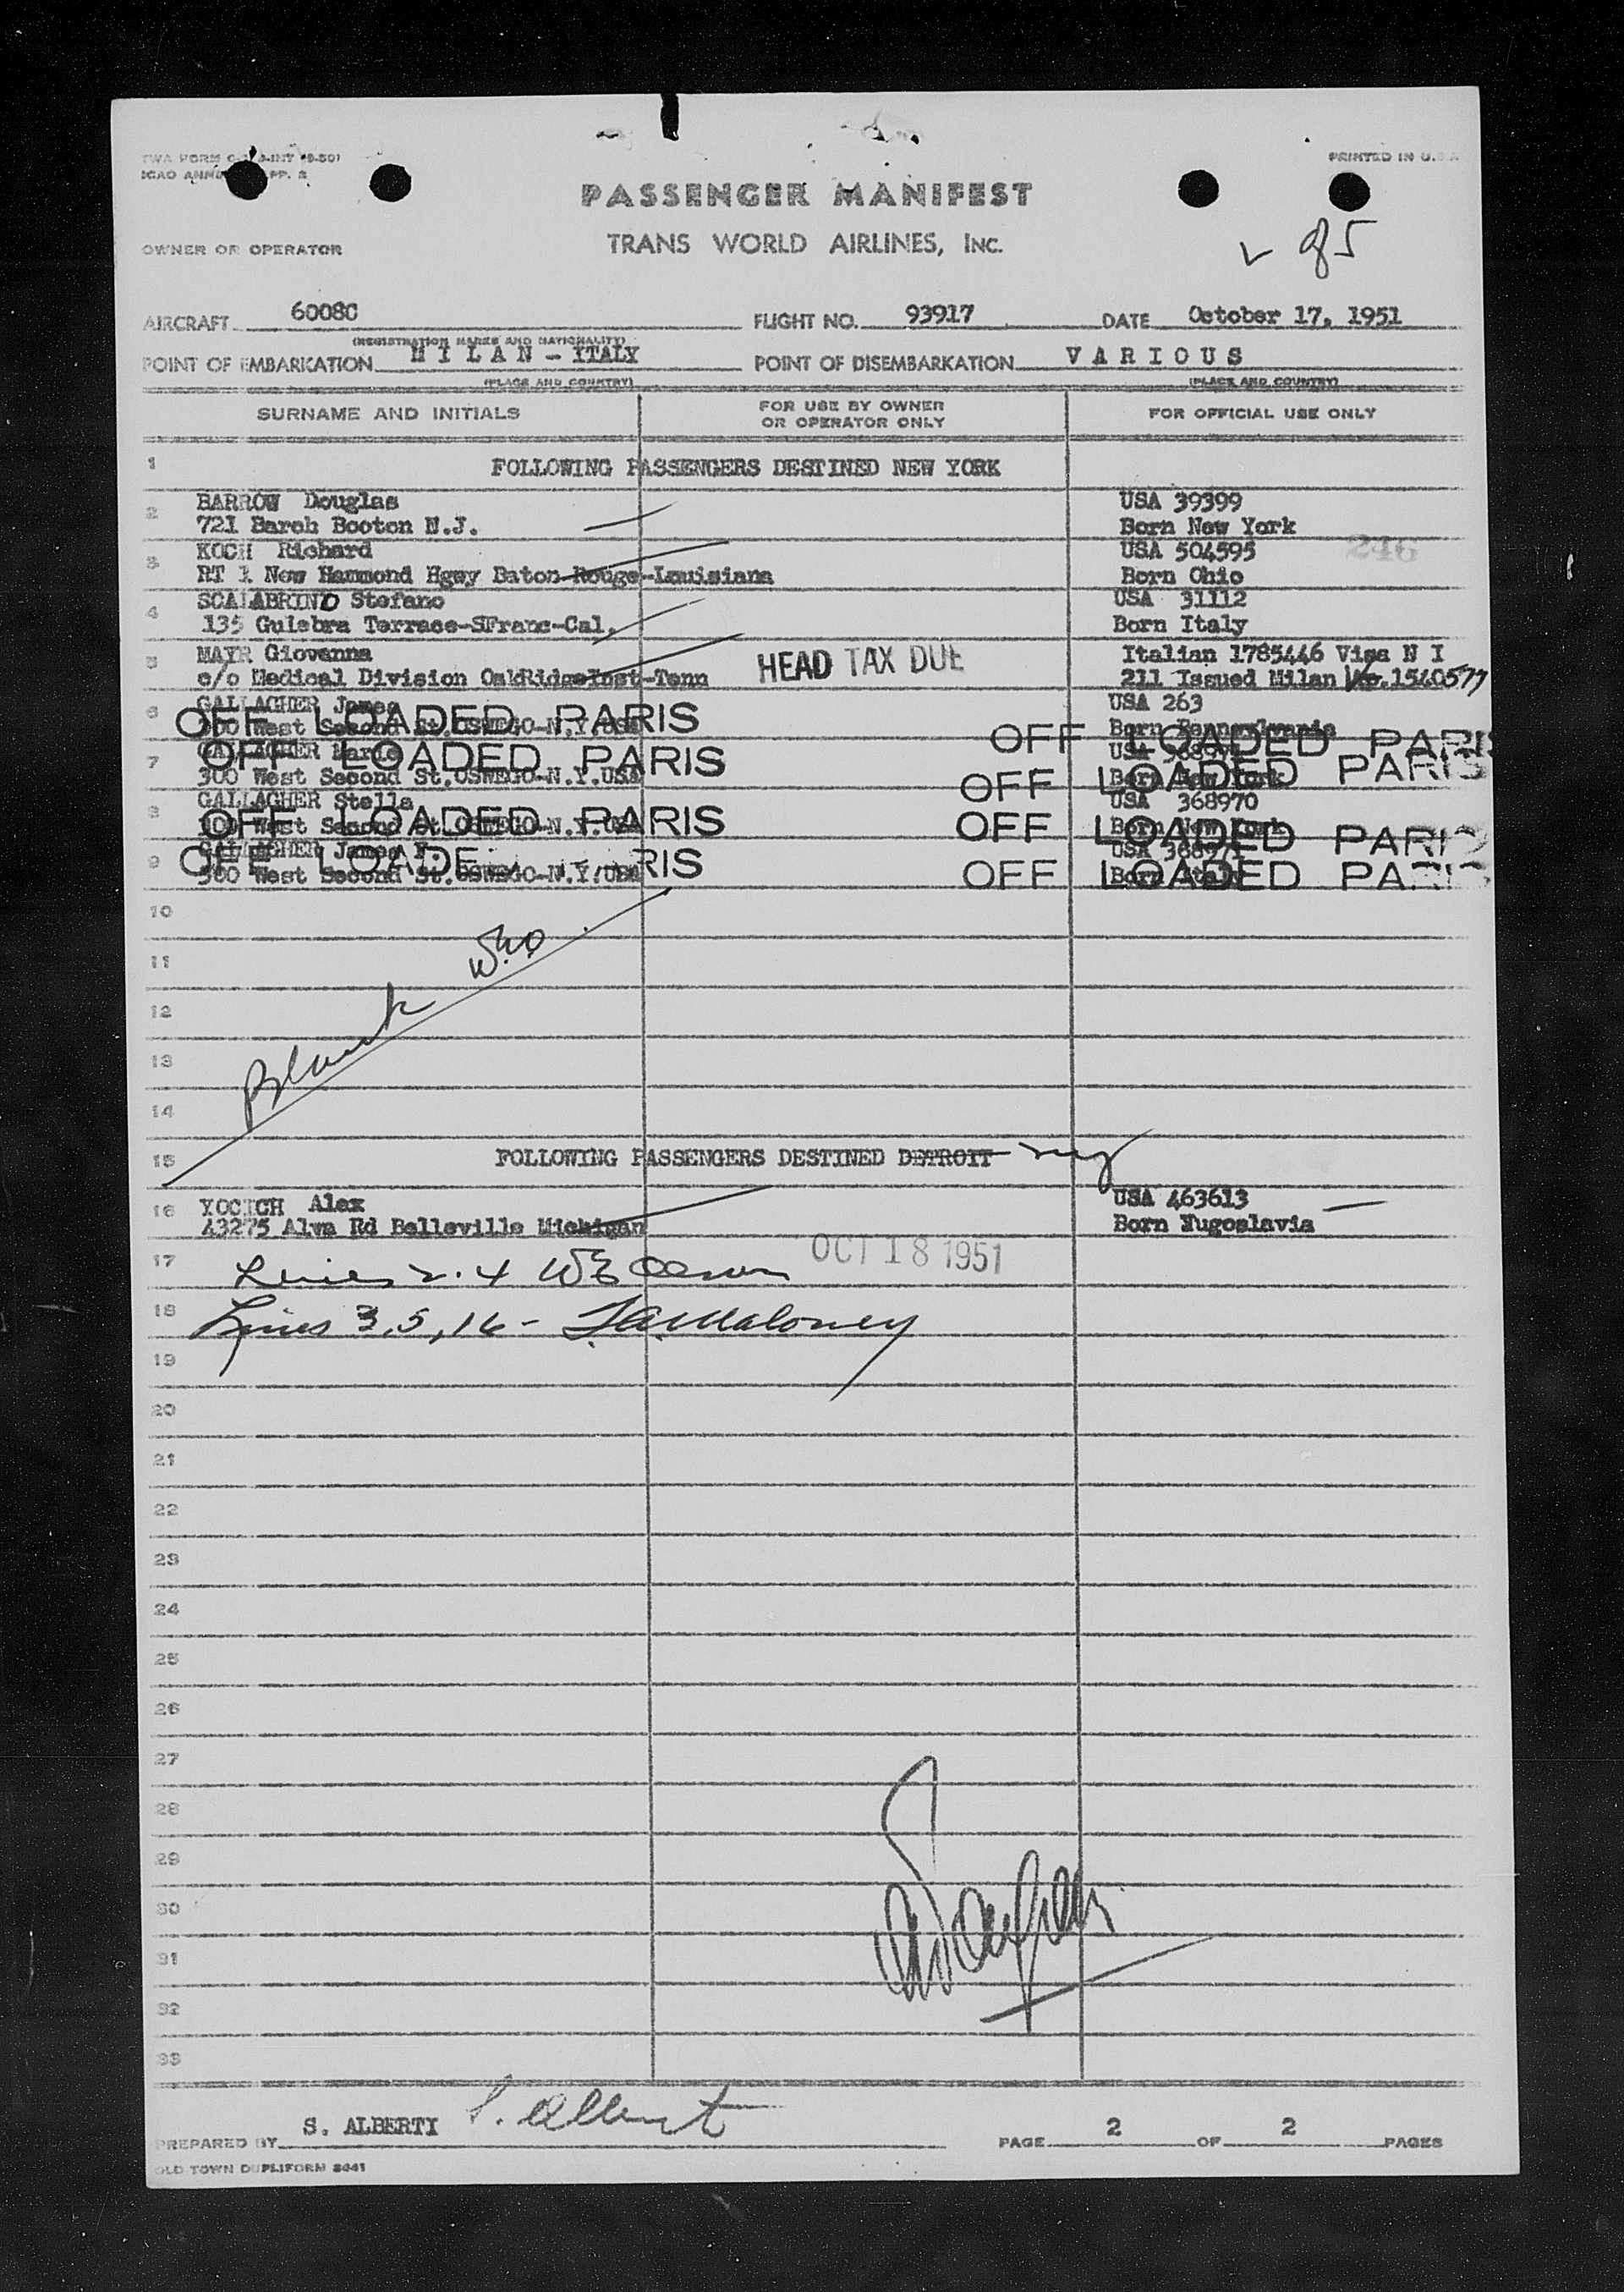 PRINTED IN U.S.A.
PASSENGER MANIFEST
OWNER OR OPERATOR
TRANS WORLD AIRLINES, INC.
AIRCRAFT 6008C FLIGHT NO. 93917 DATE October 17, 1951
(REGISTRATION MARKS AND NATIONALITY)
POINT OF EMBARKATION MILAN - ITALY POINT OF DISEMBARKATION VARIOUS
(PLACE AND COUNTRY) (PLACE AND COUNTRY)
SURNAME AND INITIALS FOR USE BY OWNER OR OPERATOR ONLY FOR OFFICIAL USE ONLY
1 FOLLOWING PASSENGERS DESTINED NEW YORK
2 BARROW Douglas USA 39399
721 Barch Booton N.J. Born New York
3 KOCH Richard USA 504595 246
RT 1 New Hammond Hgwy Baton-Rouge-Louisiana Born Ohio
4 SCALABRINO Stefano USA 31112
135 Gulebra Terrace-SFranc-Cal. Born Italy
5 MAYR Giovanna HEAD TAX DUE Italian 1785446 Visa N I
c/o Medical Division OakRidgeInst-Tenn 211 Issued Milan
6 GALLAGHER James USA 263
300 West Second St.OSWEGO-N.Y.USA Born Pennsylvania
OFF LOADED PARIS OFF LOADED PARIS
7 GALLAGHER
300 West Second St.OSWEGO-N.Y.USA Born New York
OFF LOADED PARIS OFF LOADED PARIS
8 GALLAGHER Stella USA 368970
300 West Second St.OSWEGO-N.Y.USA Born New York
OFF LOADED PARIS OFF LOADED PARIS
9 GALLAGHER James USA 368971
300 West Second St.OSWEGO-N.Y.USA Born Italy
OFF LOADED PARIS OFF LOADED PARIS
10
11
12 Blank
13
14
15 FOLLOWING PASSENGERS DESTINED DETROIT ny
16 YOCICH Alex USA 463613
43275 Alva Rd Belleville Michigan Born Yugoslavia
17 Lines 2.4 OCT 18 1951
18 Lines 3,5,16- Maloney
19
20
21
22
23
24
25
26
27
28
29
30
31
32
33
PREPARED BY S. ALBERTI S. Alberti PAGE 2 OF 2 PAGES
OLD TOWN DUPLIFORM 8441